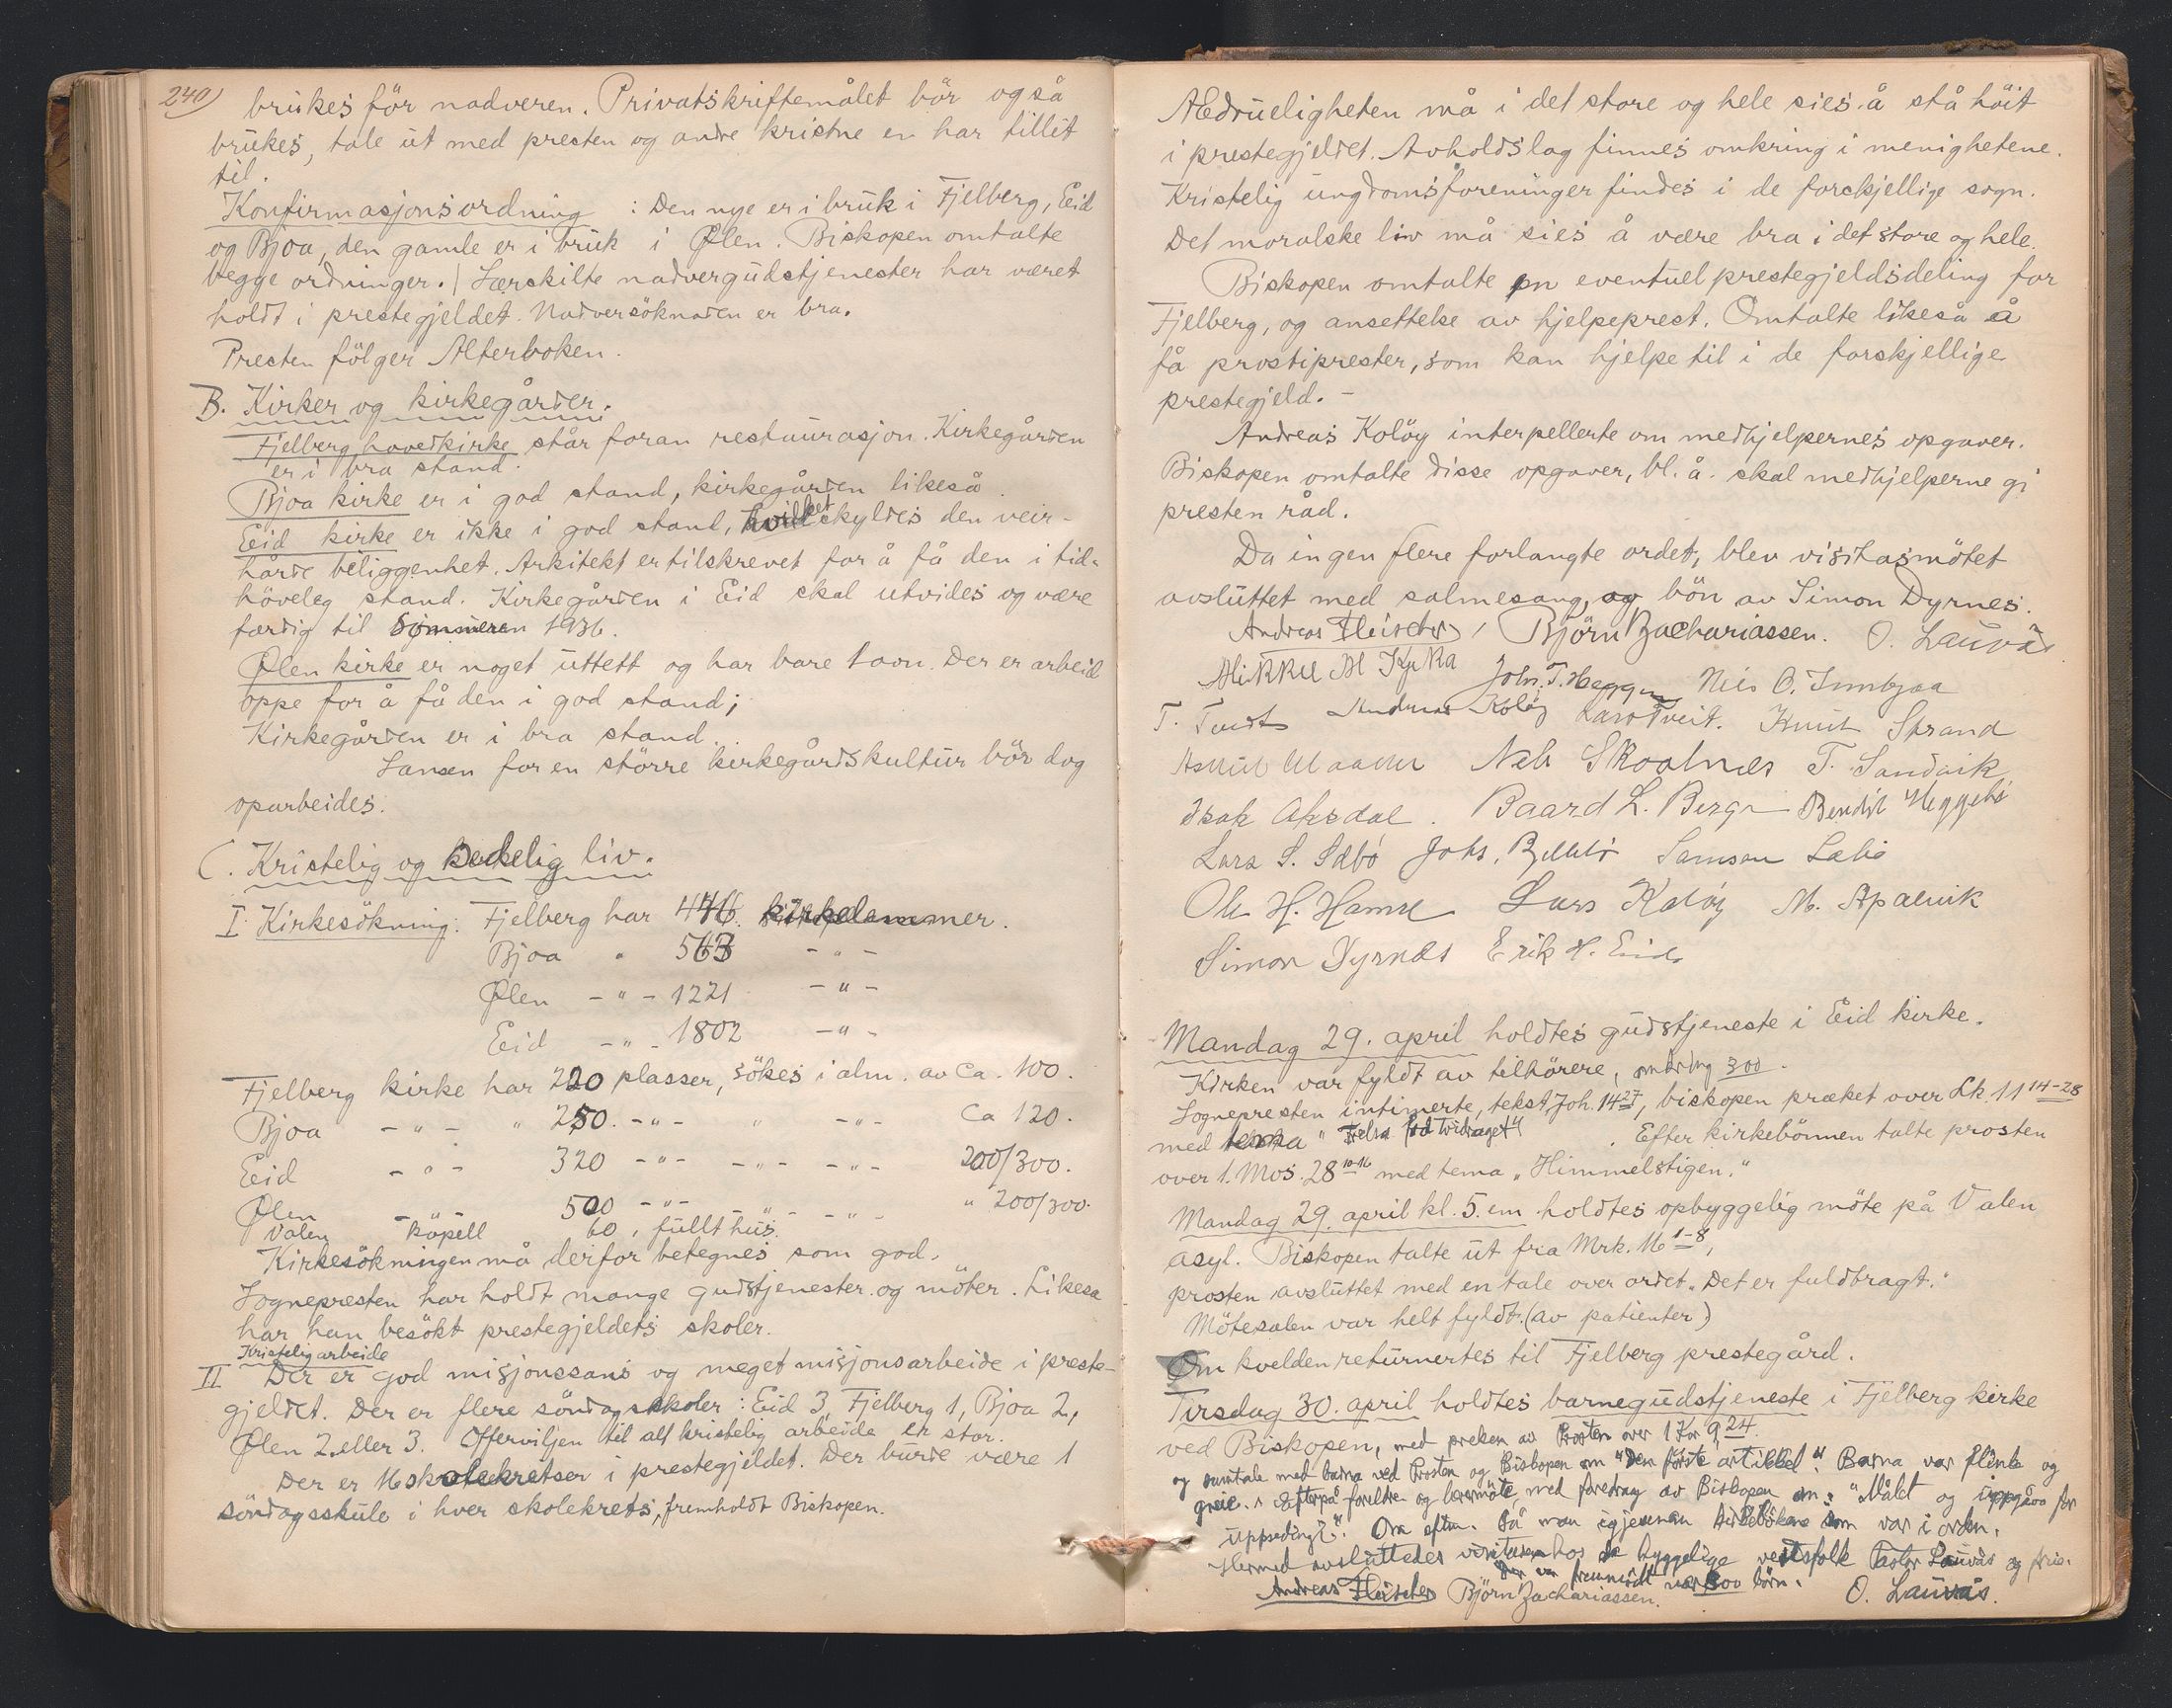 240)
brukes för nadveren. Privatskriftemålet bör også
brukes, tale ut med presten og andre kristne en har tillit
til.
Konfirmasjonsordning : Den nye er i bruk i Fjelberg, Eid
og Bjoa, den gamle er i bruk i Ølen. Biskopen omtalte
begge ordninger. | Særskilte nadvergudstjenester har været
holdt i prestegjeldet. Nadversöknaden er bra.
Presten fölger Alterboken.
B. Kirker og kirkegårder.
Fjelberg hovedkirke står foran restaurasjon. Kirkegården
er i bra stand.
Bjoa kirke er i god stand, kirkegården likeså.
Eid kirke er ikke i god stand, hvilket skyldes den veir-
hårde beliggenhet. Arkitekt er tilskrevet for å få den i tid-
höveleg stand. Kirkegården i Eid skal utvides og være
færdig til sommeren 1936.
Ølen kirke er noget uttett og har bare 1 ovn. Der er arbeid
oppe for å få den i god stand;
Kirkegården er i bra stand.
Sansen for en större kirkegårdskultur bör dog
oparbeides.
C. Kristelig og kirkelig liv.
I. Kirkesökning: Fjelberg har 446 kirkelemmer.
Bjoa " 563 - " -
Ølen - " - 1221 - " -
Eid - " - 1802 - " -
Fjelberg kirke har 220 plasser, sökes i alm. av ca. 100.
Bjoa - " - " 250. - " - " - " - Ca 120.
Eid - " - 320 - " - - " - - " - 200/300.
Ølen - " - 500 - " - " - " - " 200/300.
Valen kapell 60, fullt hus.
Kirkesökningen må derfor betegnes som god.
Sognepresten har holdt mange gudstjenester og möter. Likesa
har han besökt prestegjeldets skoler.
Kristelig arbeide
II Der er god misjonssans og meget misjonsarbeide i preste-
gjeldet. Der er flere söndagsskoler : Eid 3, Fjelberg 1, Bjoa 2,
Ølen 2 eller 3. Offerviljen til alt kristelig arbeide er stor.
Der er 16 skolekretser i prestegjeldet. Der burde være 1
söndagsskule i hver skolekrets, fremholdt Biskopen.
Ædrueligheten må i det store og hele sies å stå höit
i prestegjeldet. Avholdslag finnes omkring i menighetene.
Kristelig ungdomsforeninger findes i de forskjellige sogn.
Det moralske liv må sies å være bra i det store og hele.
Biskopen omtalte en eventuel prestegjeldsdeling for
Fjelberg, og ansettelse av hjelpeprest. Omtalte likeså å
få prostiprester, som kan hjelpe til i de forskjellige
prestegjeld. -
Andreas Kolöy interpellerte om medhjelpernes opgaver.
Biskopen omtalte disse opgaver, bl. a. skal medhjelperne gi
presten råd.
Da ingen flere forlangte ordet, blev visitasmötet
avsluttet med salmesang, og bön av Simon Dyrnes.
Andreas Fleischer / Björn Zachariassen. O. Lauvås
Mikkel M
Joh. T. Heggen Nils O. Innbjoa
T. Tveit Andreas Kolöy Lars Tveit. Knut Strand
Nels Skaalnes T. Sandvik
Isak Aksdal. Baard L. Berge Bendik Heggebö
Lars S. Sæbö Johs. Samson Sæbö
Ole H. Hamre Lars Kolöy M. Apalvik
Simon Dyrnes Erik H. Eide
Mandag 29. april holdtes gudstjeneste i Eid kirke.
Kirken var fyldt av tilhörere, omkring 300.
Sognepresten intimerte, tekst Joh. 14 27, biskopen præket over Lk. 11 14-28
med tema " ". Efter kirkebönnen talte prosten
over 1. Mos. 28 10-16 med tema „Himmelstigen."
Mandag 29. april kl. 5. em holdtes opbyggelig möte på Valen
asyl. Biskopen talte ut fra Mrk. 16 1-8,
prosten avsluttet med en tale over ordet „Det er fuldbragt."
Mötesalen var helt fyldt. (av patienter)
Om kvelden returnertes til Fjelberg prestegård.
Tirsdag 30. april holdtes barnegudstjeneste i Fjelberg kirke
ved Biskopen, med preken av Prosten over 1 Kor 9 24.
og samtale med barna ved Prosten og Biskopen om "Den förste artikkel". Barna var flinke og
greie. Efterpå foreldre og lærermöte, med foredrag av Biskopen om: "Målet og uppgåva for
uppseding". Om eftm. så man igjennem kirkebökene som var i orden.
Hermed avsluttedes visitasen hos de hyggelige vertsfolk Pastor Lauvås og frue.
Der var fremmött nær 300 börn.
Andreas Fleischer Björn Zachariassen. O. Lauvås.